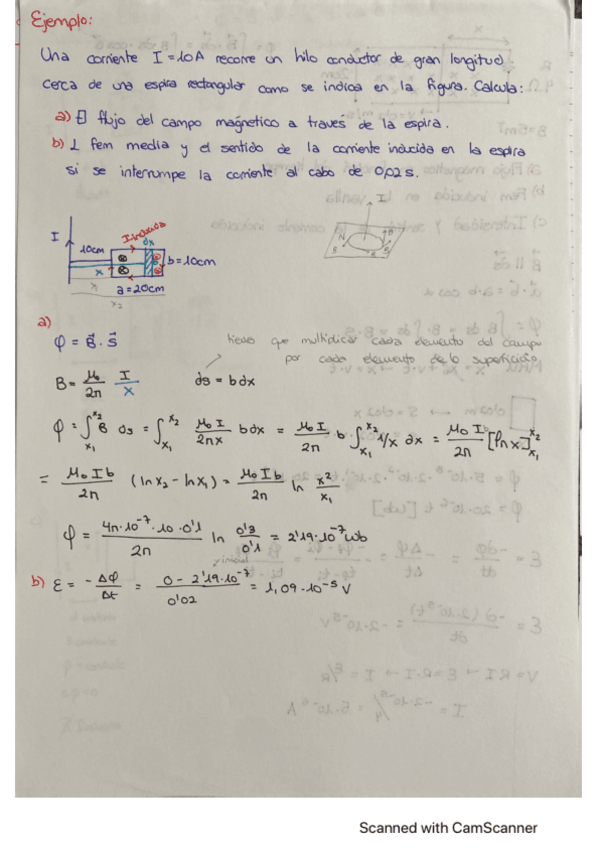 Ejemplo:
Una corriente I = 10A recorre un hilo conductor de gran longitud,
cerca de una espira rectangular como se indica en la figura. Calcula:
a) El flujo del campo magnético a través de la espira.
b) L fem media y el sentido de la corriente inducida en la espira
si se interrumpe la corriente al cabo de 0,02 s.
I
10cm
Inducida
dx
x
b = 10cm
a = 20cm
x
x2
N
S
a)
φ = B⃗ · S⃗
tienes que multiplicar cada elemento del campo
por cada elemento de la superficie
B = μ₀/2π I/x
ds = b dx
φ = ∫x₁^x₂ B ds = ∫x₁^x₂ μ₀ I/2πx b dx = μ₀ I/2π b ∫x₁^x₂ 1/x dx = μ₀ I/2π [ln x]x₁^x₂
= μ₀ I b/2π (ln x₂ - ln x₁) = μ₀ I b/2π ln x²/x₁
φ = 4π·10⁻⁷·10·0'1/2π ln 0'3/0'1 = 2'19·10⁻⁷ wb
inicial
b) ε = -Δφ/Δt = 0 - 2'19·10⁻⁷/0'02 = 1,09·10⁻⁵ V
Scanned with CamScanner